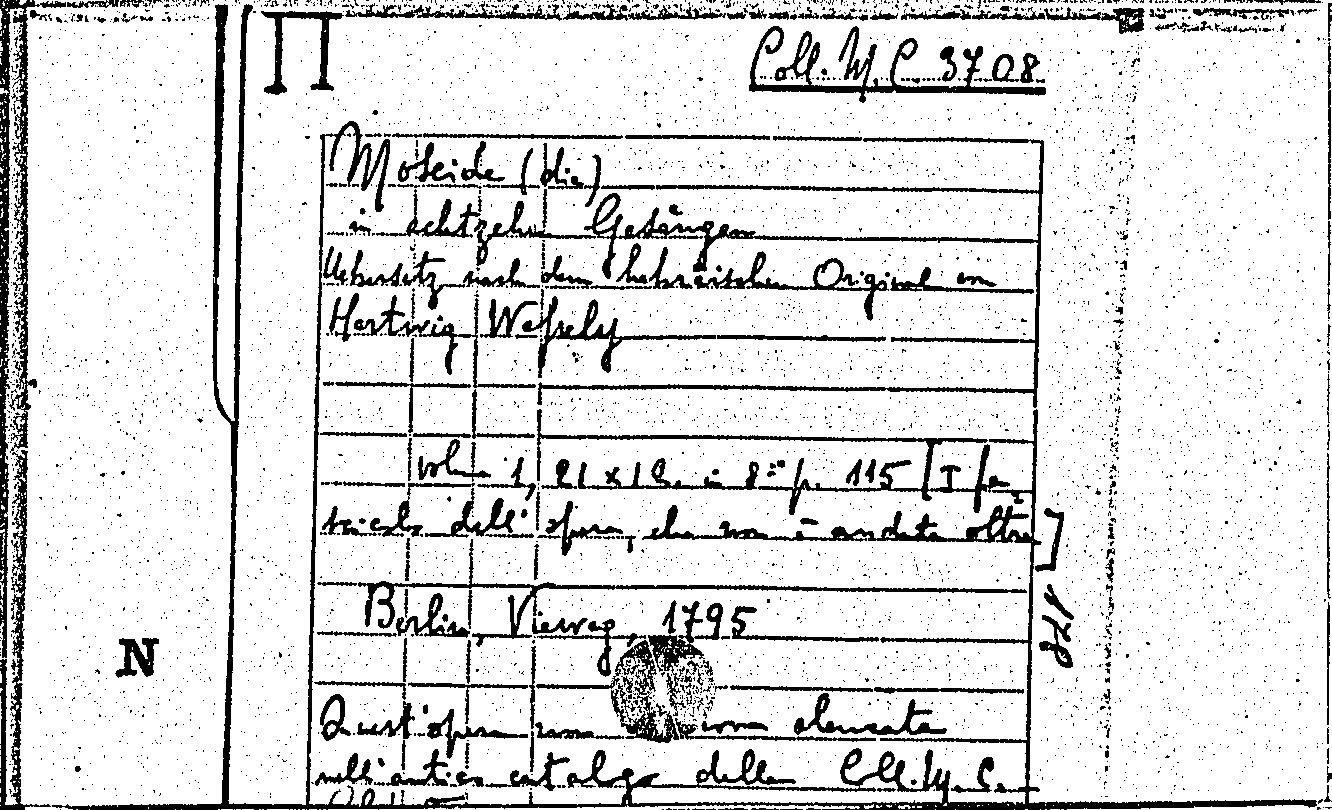 Π
Coll. M. C. 3708
Moseide (die)
in achtzehn Gesängen
Uebersetz nach dem hebräischen Original von
Hartwig Wessely
volume 1, 21 x 12. in 8:° p. 115 [I fa-
scicolo dell'opera, che non è andata oltre]
Berlin, Vieweg, 1795
N
Quest'opera non elencata
nell'antico catalogo della Coll. M. C.